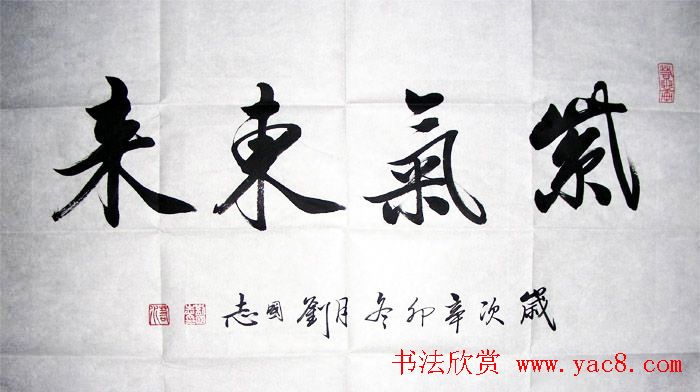 紫氣東来
歲次辛卯冬月劉國志
书法欣赏 www.yac8.com